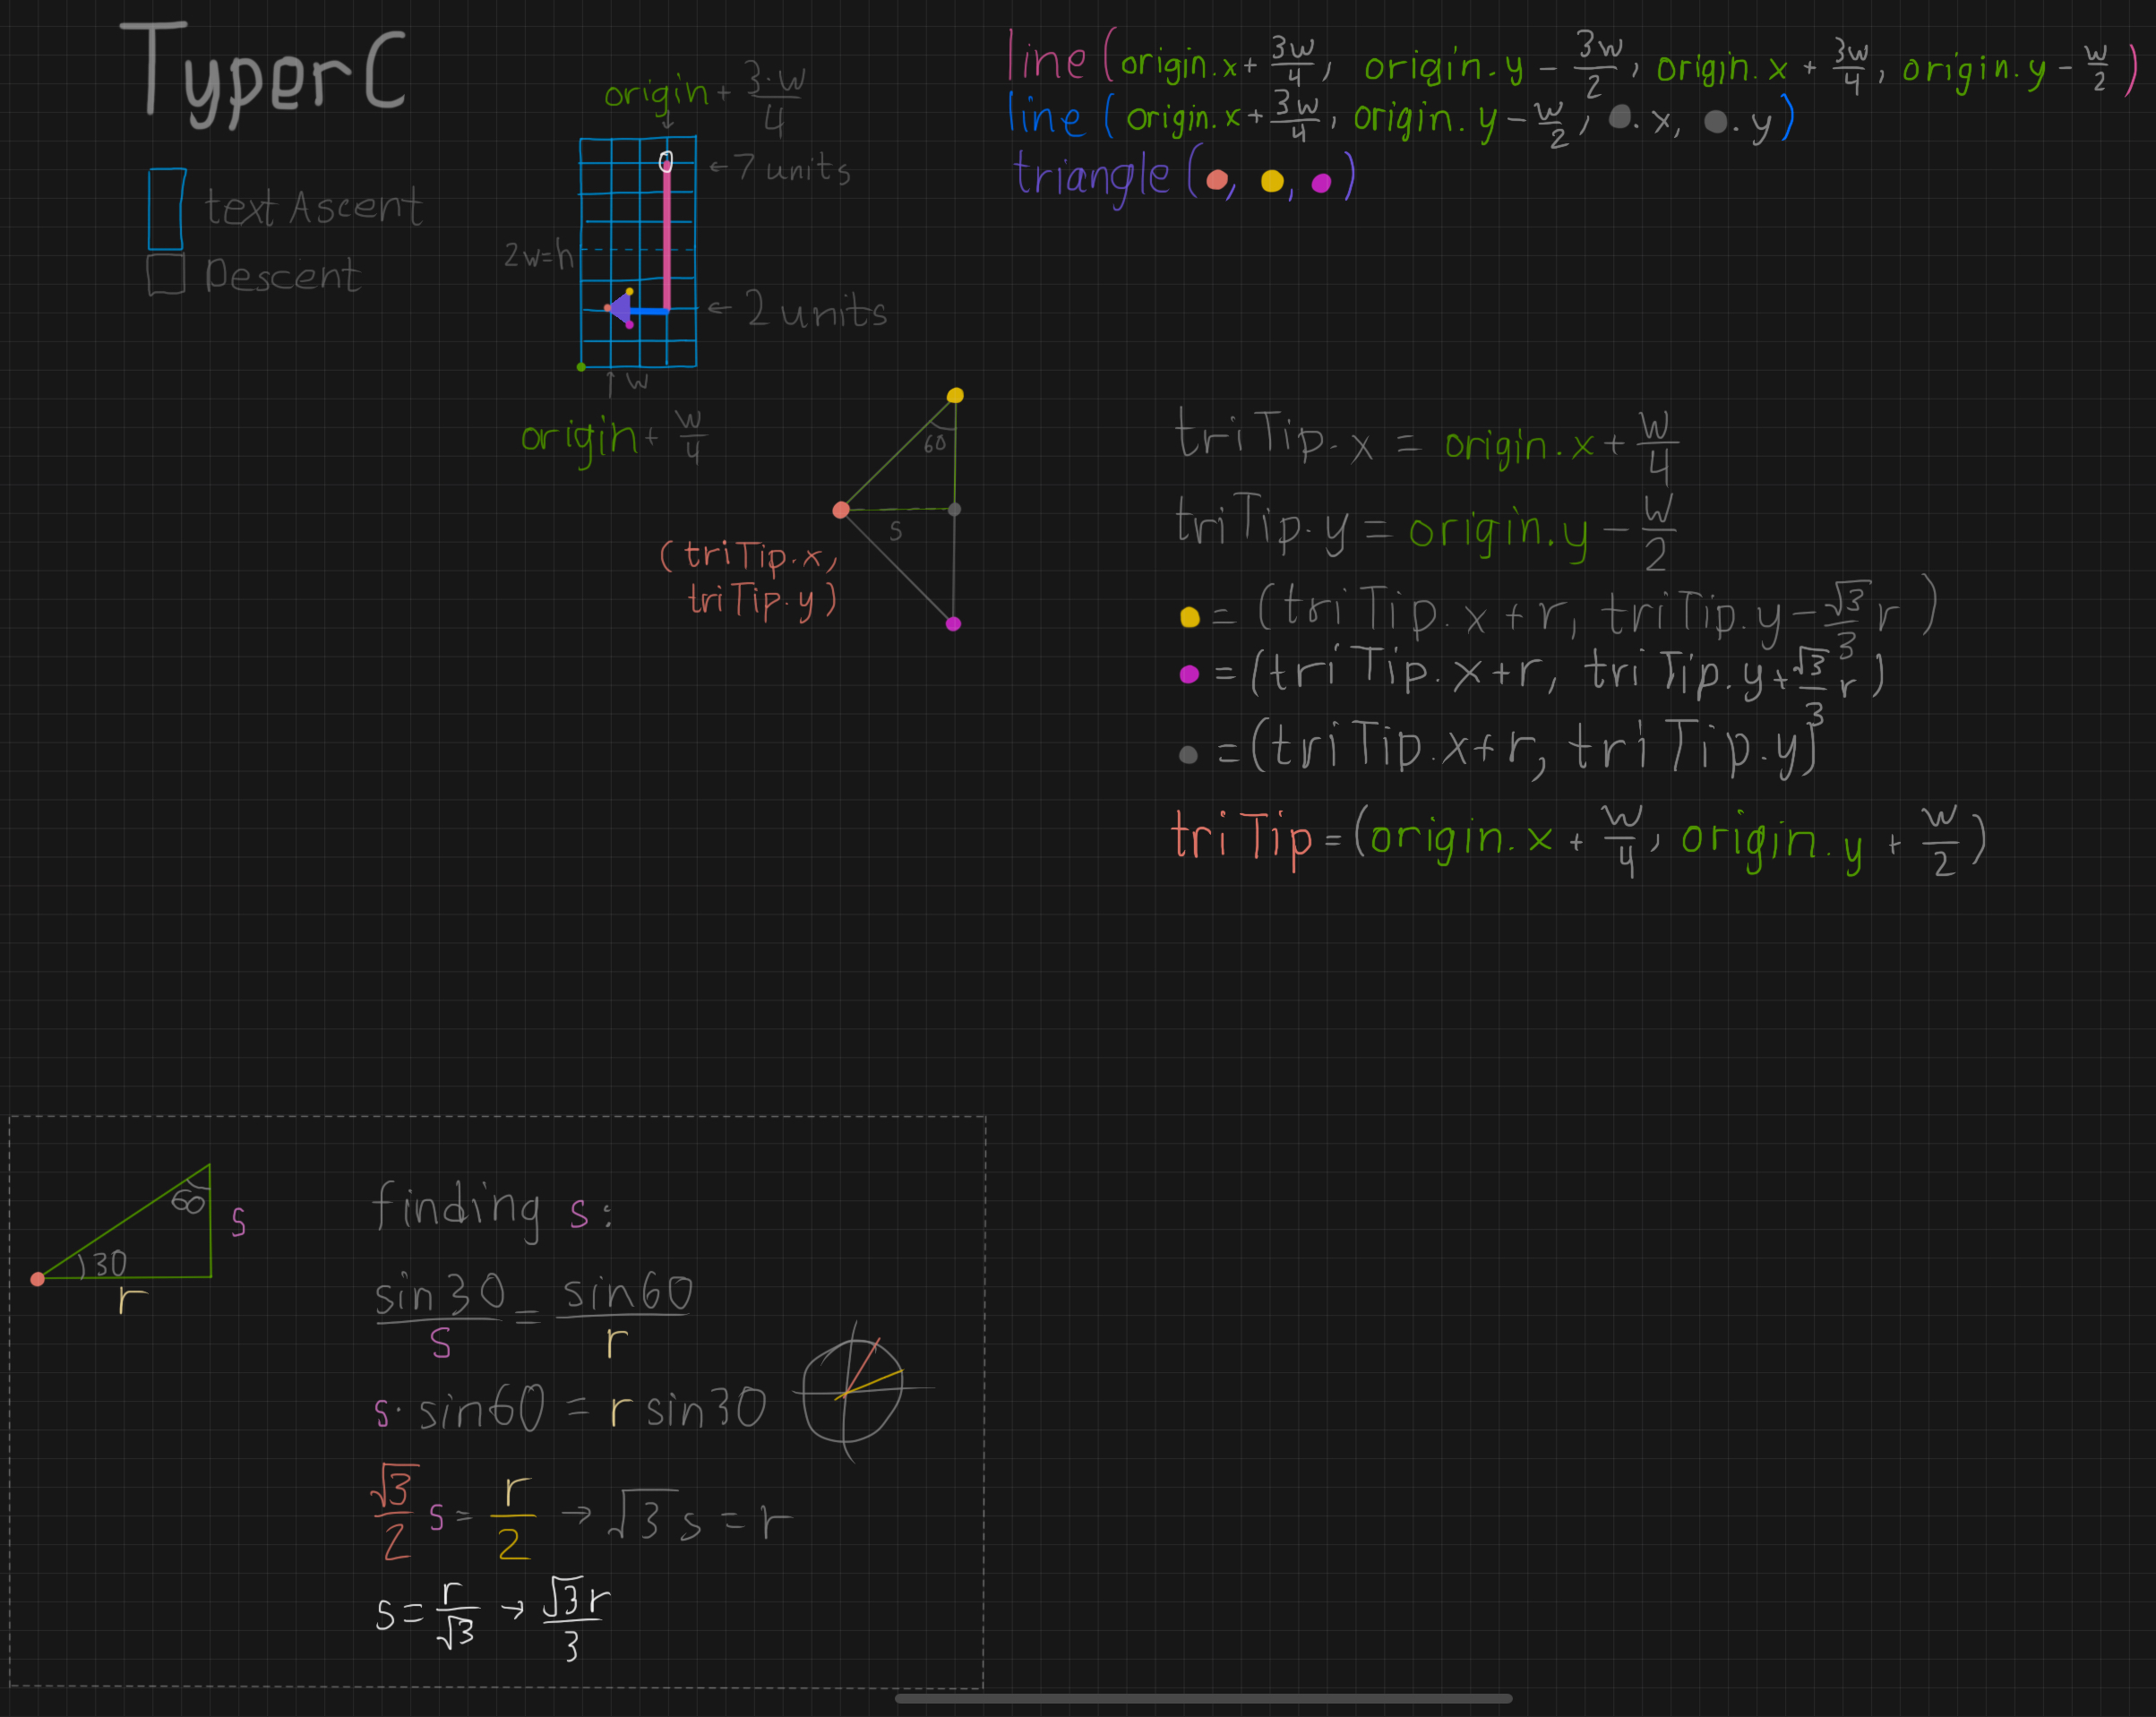 TyperC
textAscent
Descent
origin + 3·w/4
↓
← 7 units
2w=h
← 2 units
↑ w
origin + w/4
line (origin.x + 3w/4, origin.y - 3w/2, origin.x + 3w/4, origin.y - w/2)
line (origin.x + 3w/4, origin.y - w/2, ●.x, ●.y)
triangle (●, ●, ●)
60
s
(triTip.x,
triTip.y)
triTip.x = origin.x + w/4
triTip.y = origin.y - w/2
● = (triTip.x + r, triTip.y - √3/3 r)
● = (triTip.x+r, triTip.y + √3/3 r)
● = (triTip.x+r, triTip.y)
triTip = (origin.x + w/4, origin.y + w/2)
60
s
30
r
finding s:
sin30/s = sin60/r
s· sin60 = r sin30
√3/2 s = r/2 → √3 s = r
s = r/√3 → √3 r/3